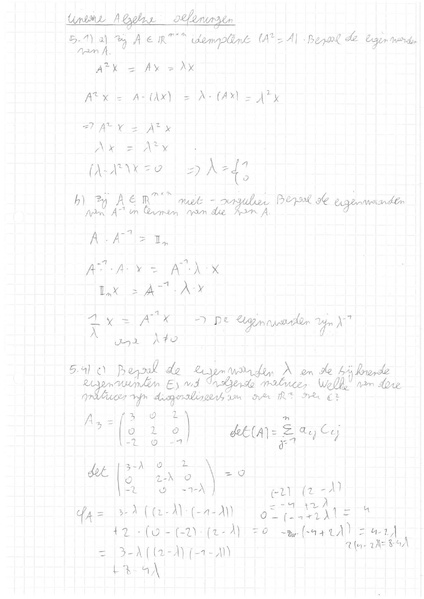 Lineaire Algebra oefeningen
5.1) a) Zij A ∈ ℝⁿˣⁿ idempotent (A² = A). Bepaal de eigenwaarden
van A.
A²x = Ax = λx
A²x = A·(λx) = λ·(Ax) = λ²x
=> A²x = λ²x
λx = λ²x
(λ-λ²)x = 0 => λ = { 1 0
b) Zij A ∈ ℝⁿˣⁿ niet-singulier Bepaal de eigenwaarden
van A⁻¹ in termen van die van A.
A · A⁻¹ = 𝕀ₙ
A⁻¹·A·x = A⁻¹·λ·x
𝕀ₙx = A⁻¹·λ·x
1/λ x = A⁻¹x -> De eigenwaarden zijn λ⁻¹
λ≠0
c) Bepaal de eigenwaarden λ en de bijhorende
eigenruimten E van volgende matrices. Welke van deze
matrices zijn diagonaliseerbaar over ℝ? over ℂ?
A₃ = (3 0 2
0 2 0
-2 0 -1)
det(A) = Σ aᵢⱼ Cᵢⱼ
det (3-λ 0 2
0 2-λ 0
-2 0 -1-λ) = 0
φA = 3-λ((2-λ)·(-1-λ))
+2·(0-(-2)·(2-λ)) = 0
= 3-λ((2-λ)(-1-λ))
+8-4λ
(-2)(2-λ)
= -4+2λ
0-(-4+2λ) = 4